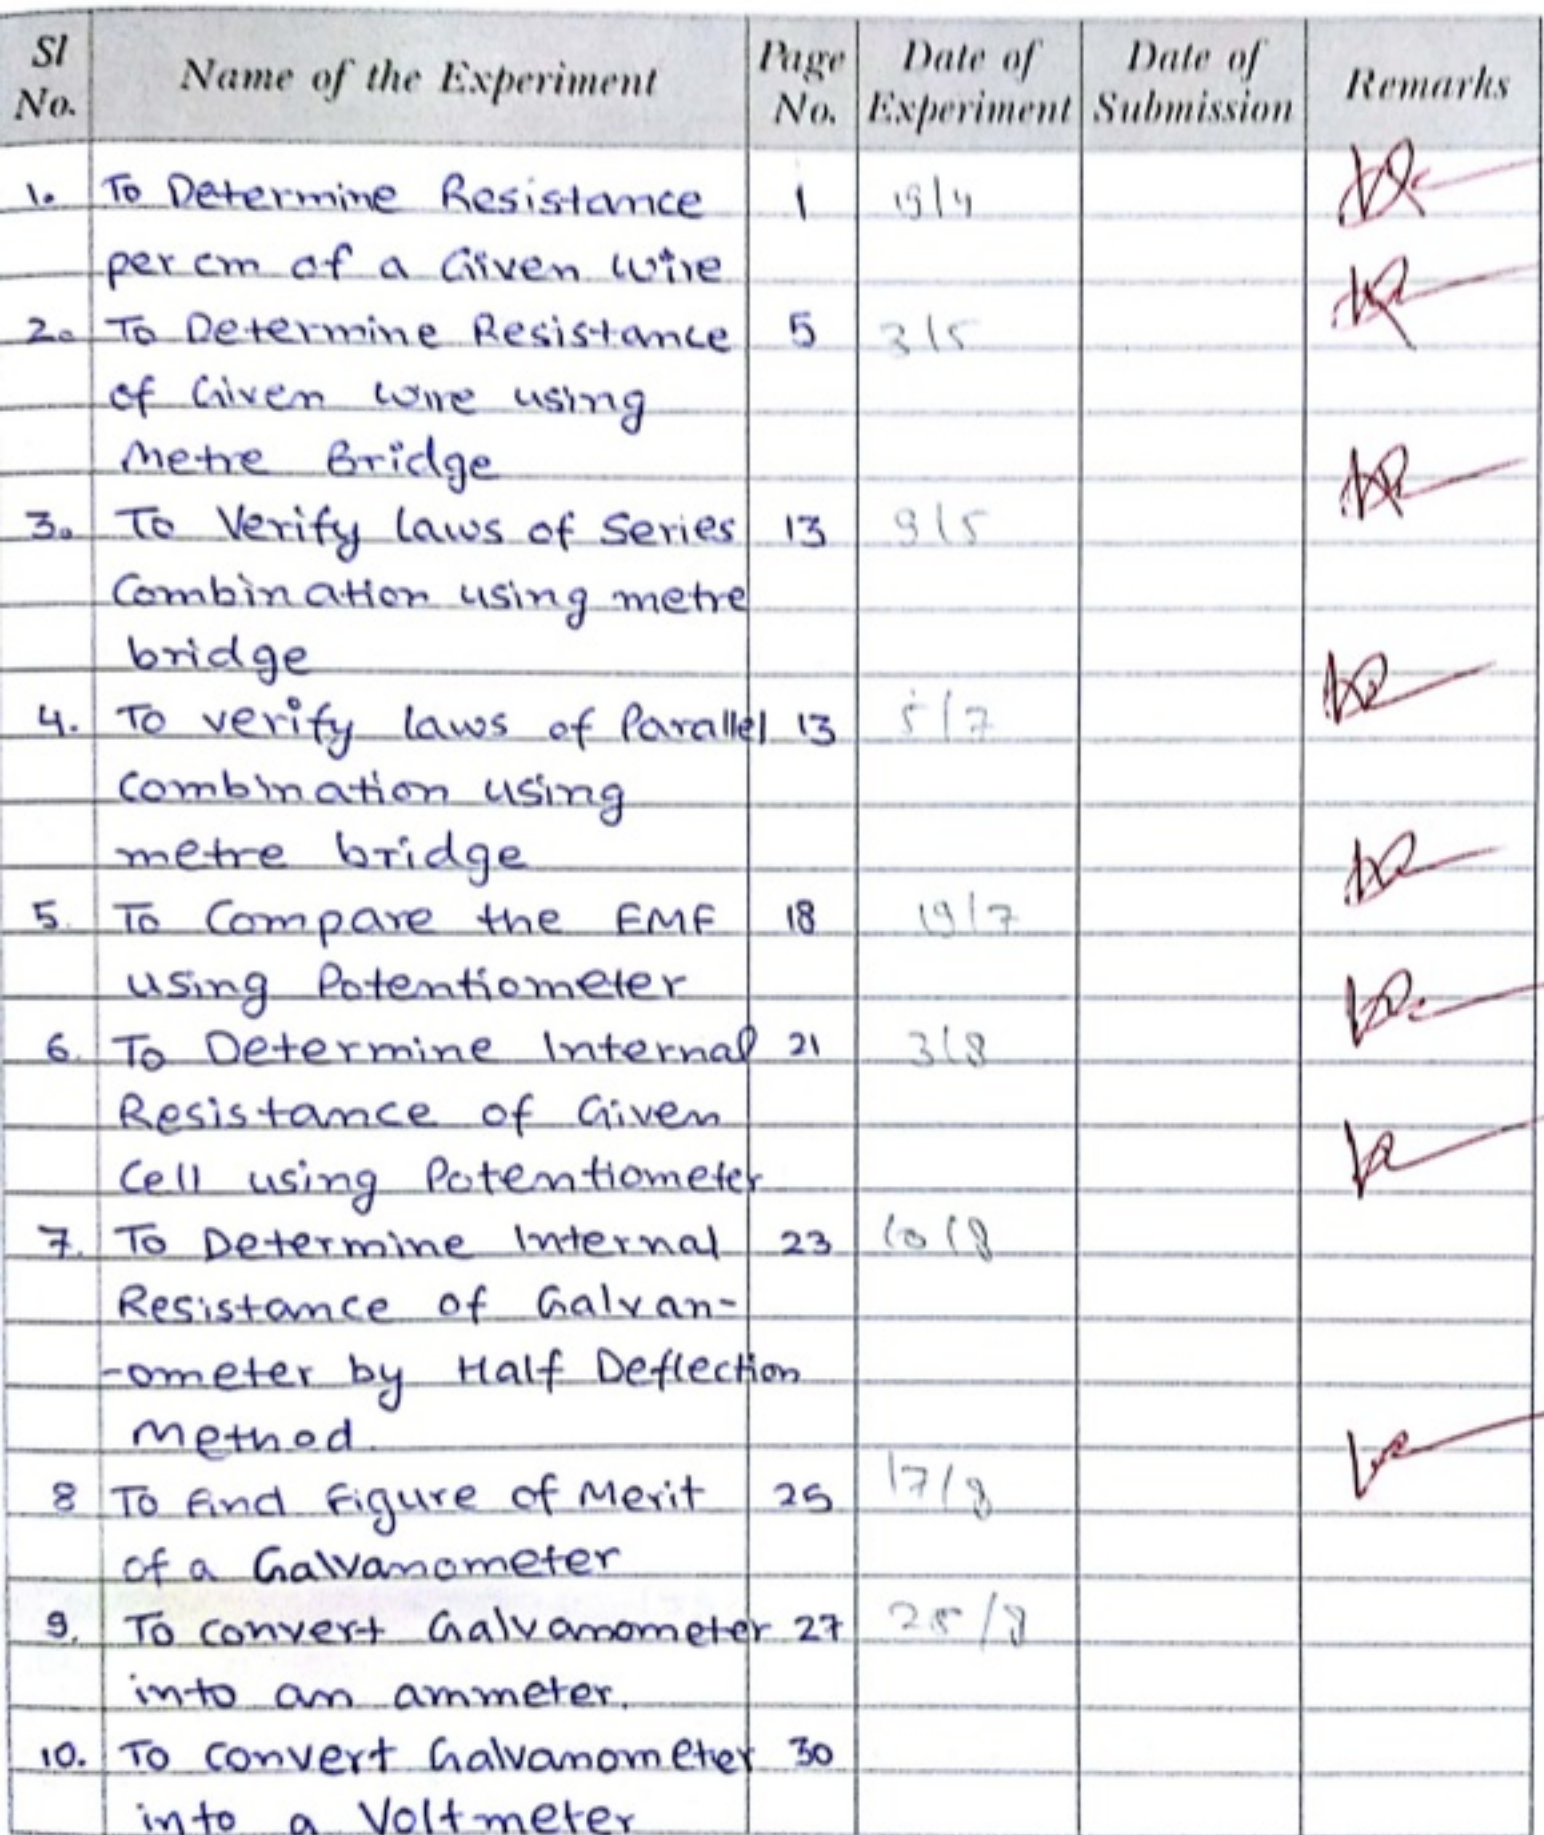 Sl No. Name of the Experiment Page No. Date of Experiment Date of Submission Remarks
1. To Determine Resistance 1 19/4
per cm of a Given wire
2. To Determine Resistance 5 3/5
of Given wire using
Metre Bridge
3. To Verify laws of Series 13 9/5
Combination using metre
bridge
4. To verify laws of Parallel 13 5/7
Combination using
metre bridge
5. To Compare the EMF 18 19/7
using Potentiometer
6. To Determine Internal 21 3/8
Resistance of Given
Cell using Potentiometer
7. To Determine Internal 23 10/8
Resistance of Galvan-
-ometer by Half Deflection
Method
8 To find Figure of Merit 25 17/8
of a Galvanometer
9. To convert Galvanometer 27 25/8
into an ammeter.
10. To convert Galvanometer 30
into a Voltmeter